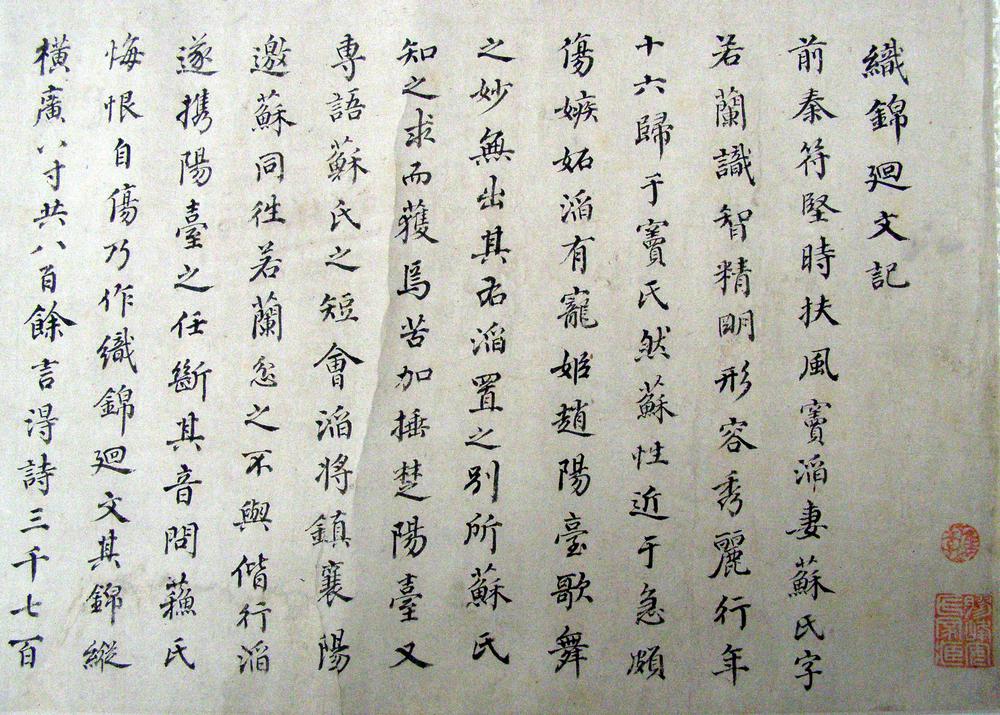 織錦廻文記
前秦符堅時扶風竇滔妻蘇氏字
若蘭識智精明形容秀麗行年
十六歸于竇氏然蘇性近于急頗
傷嫉妬滔有寵姬趙陽臺歌舞
之妙無出其右滔置之別所蘇氏
知之求而獲焉苦加捶楚陽臺又
專語蘇氏之短會滔將鎮襄陽
邀蘇同往若蘭忿之不與偕行滔
遂攜陽臺之任斷其音問蘓氏
悔恨自傷乃作織錦廻文其錦縱
橫廣八寸共八百餘言得詩三千七百